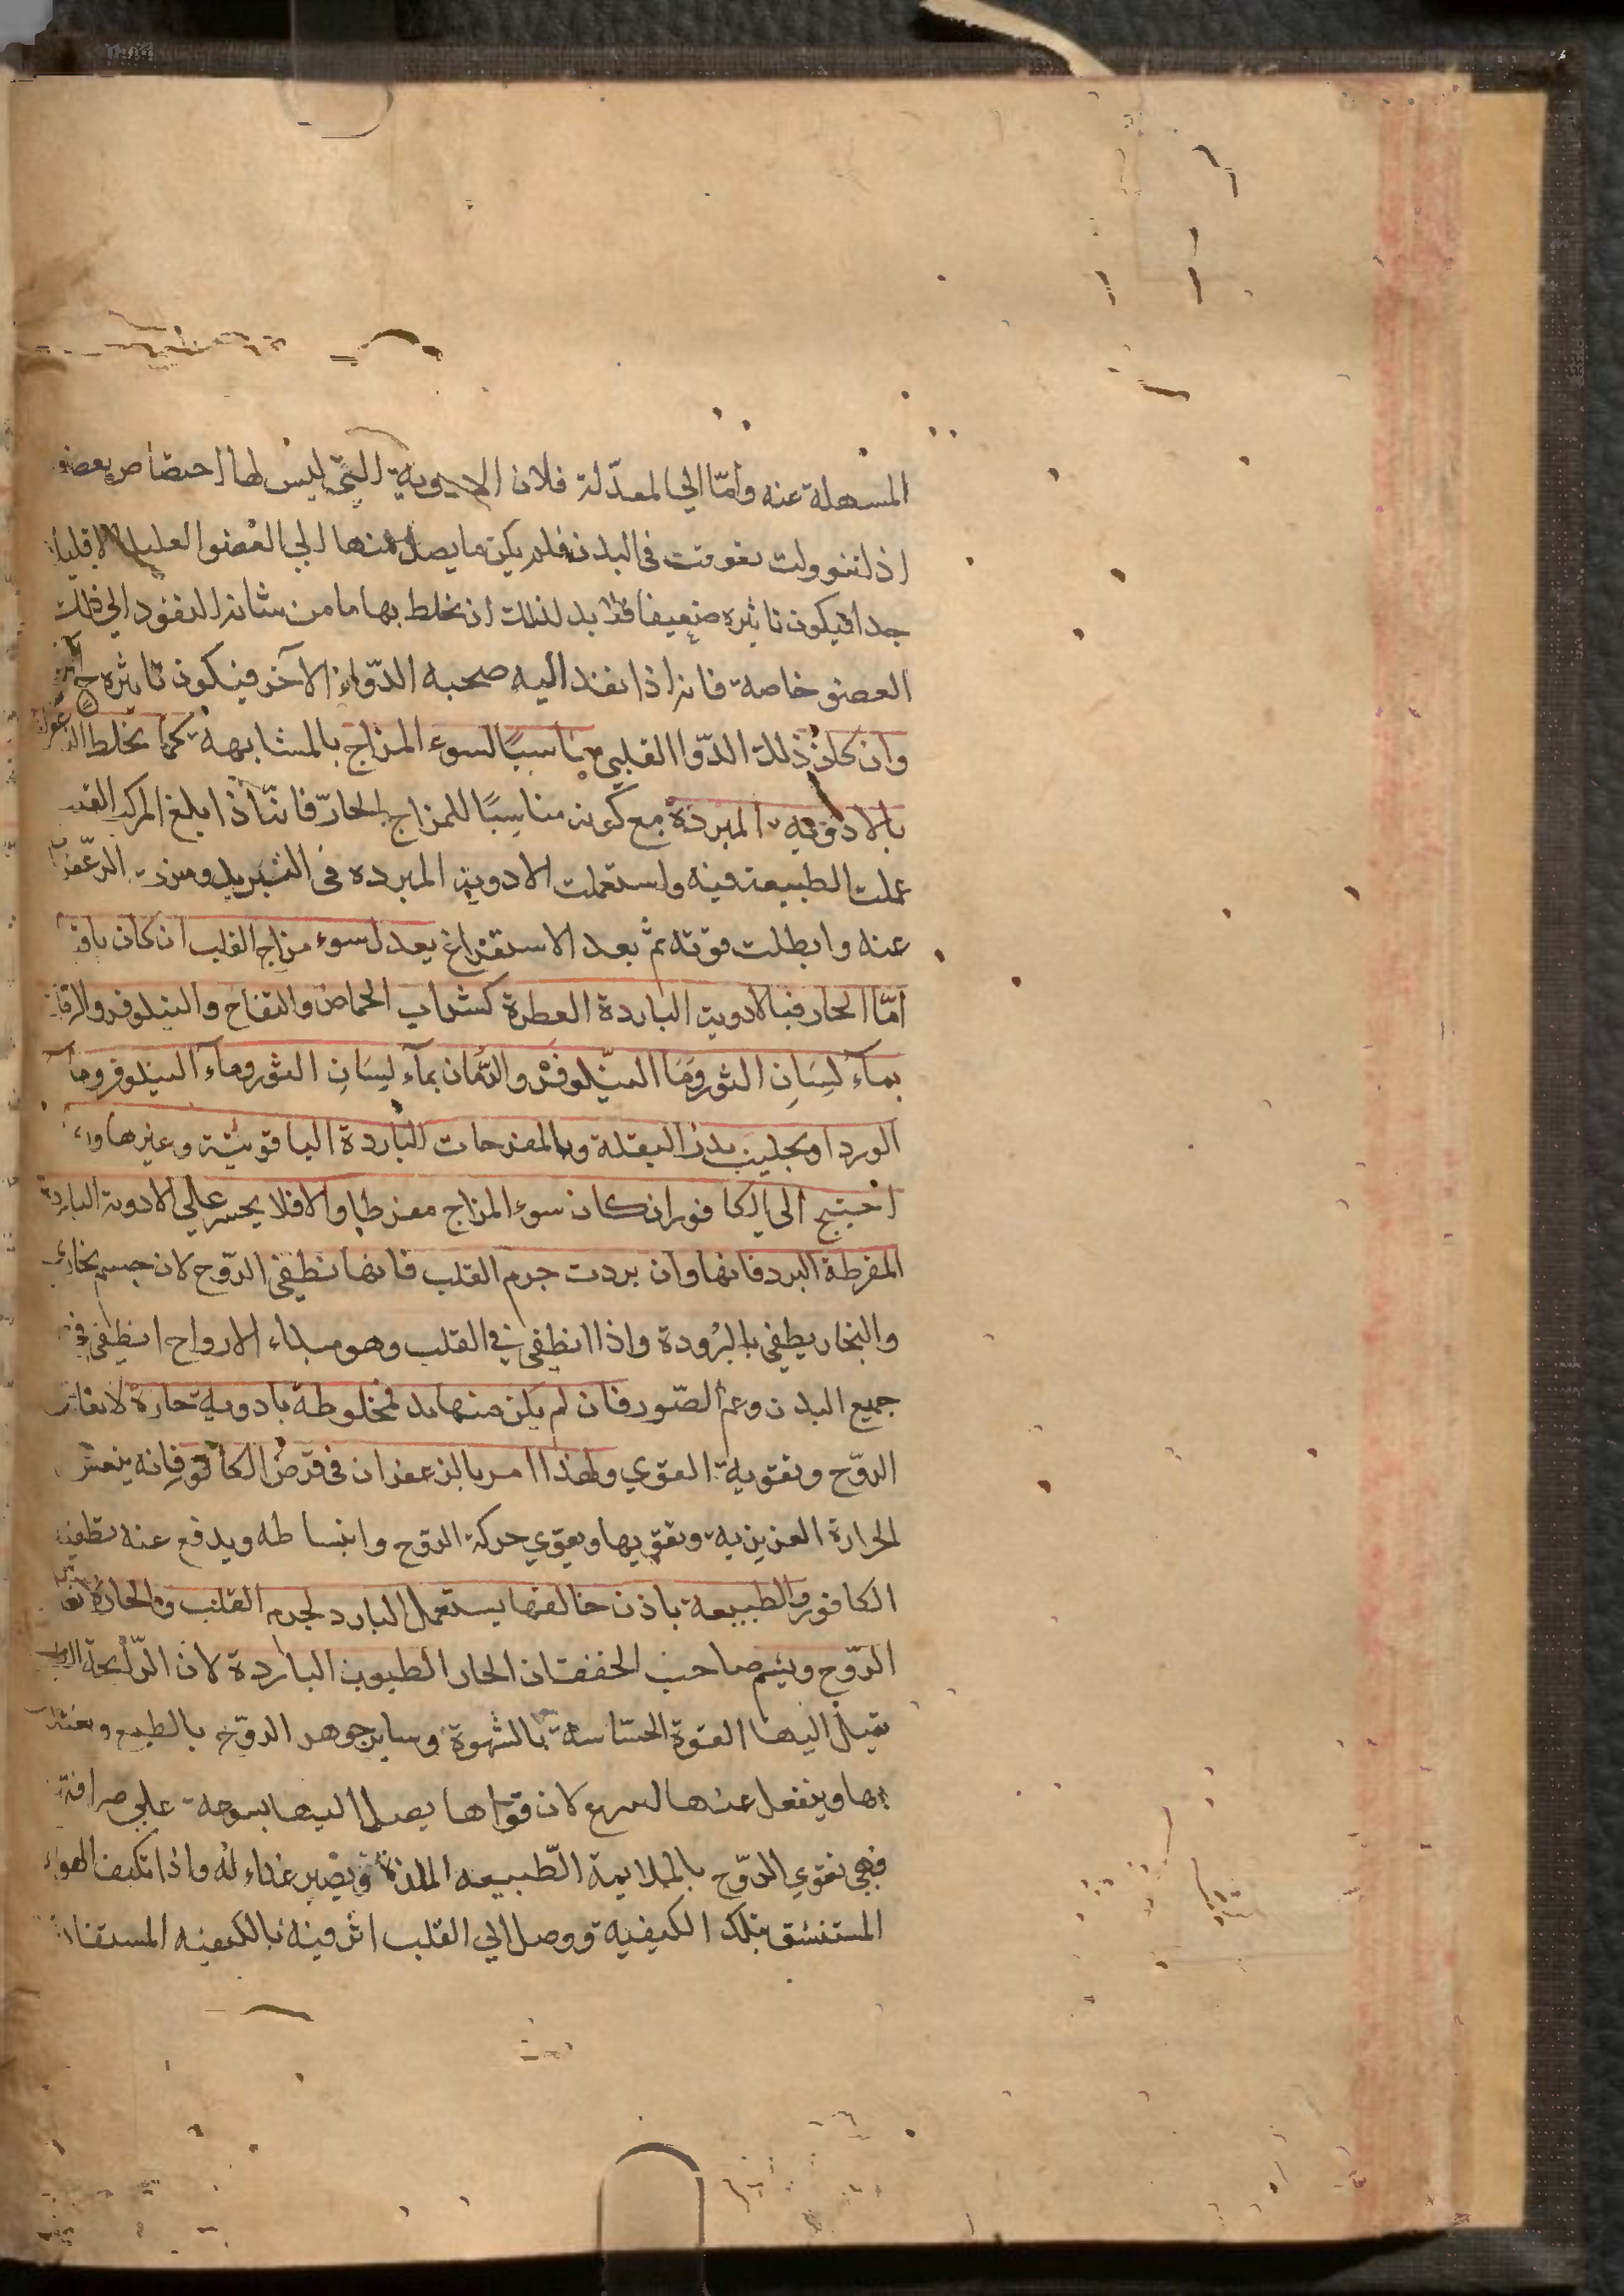 المسهلة عنه وأمّا الي المعدّلة فلان الادوية التي ليس لها اختصاص بعضو
اذا تنوولت تفرقت في البدن فلم يكن ما يصل منها الي العضو العليل الا قليلا
جدا فيكون تاثيره ضعيفا فلا بد لذلك ان يخلط بها ما من شانه النفوذ الي ذلك
العضو خاصة فانه اذا نفذ اليه صحبه الدّواء الآخر فيكون تاثيره ح
وان كان ذلك الدّوا القلبي مناسبًا لسوء المزاج بالمشابهة كما يخلط الزعفران
بالادوية المبردة مع كونه مناسِبًا للمزاج الحارّ فانّه اذا بلغ المركب القلب
عملت الطبيعة فيه واستعملت الادوية المبرده في التبريد وميزت الزعفران
عنه وابطلت قوته ثم بعد الاستفراغ يعدل سوء مزاج القلب ان كان باقيا
امّا الحار فبالادوية الباردة العطرة كشراب الحماض والتفاح والنيلوفر
بمآء لِسَانِ الثور ومَا النيّلوفر والرُّمان بمآء لِسَانِ الثور وماء النيلوفر وماء
الورد او بجليب بذر البقلة وبالمفرحات الباردة الياقوتية وغيرها
احتيج الي الكافور ان كان سوء المزاج مفرطا والا فلا يجسر علي الادوية الباردة
المفرطة البرد فانها وان بردت جرم القلب فانها تطفي الرّوح لان جسم بخاري
والبخار يطفي بالبرُودة واذا انطفي في القلب وهو مبداء الارواح انطفي في
جميع البدن وعم الضّرر فان لم يكن منها بد فمخلوطة بادوية حارة
الروّح وتقوية القوي ولهذا امر بالزعفران في قرص الكافور فانه ينعش
الحرارة الغريزية ويقويها ويقوي حركة الروح وانبساطه ويدفع عنه تطفية
الكافور والطبيعة باذن خالقها يستعمل البارد لجرم القلب والحارة
الرّوح ويشم صاحب الخفقان الحار الطيوب الباردة لان الرّايحة
تميل اليها القوة الحسّاسة بالشهوة وساير جوهر الروّح بالطبع
بها وينفعل عنها اسرع لان قواها يصل اليها بسرعة علي صرافته
فهي تقوي الروّح بالملايمة الطّبيعه الملذة ويصير غذاء له واذا تكيف الهواء
المستنشق بتلك الكيفية ووصل الي القلب اثر فيه بالكيفيه المستفادة